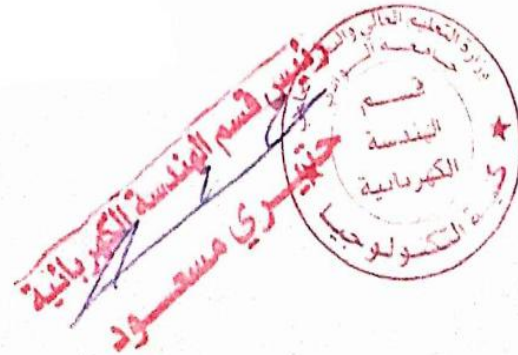 رئيس قسم الهندسة الكهربائية
حتيري مسعود
وزارة التعليم العالي
جامعة
قسم
الهندسة
الكهربائية
التكنولوجيا